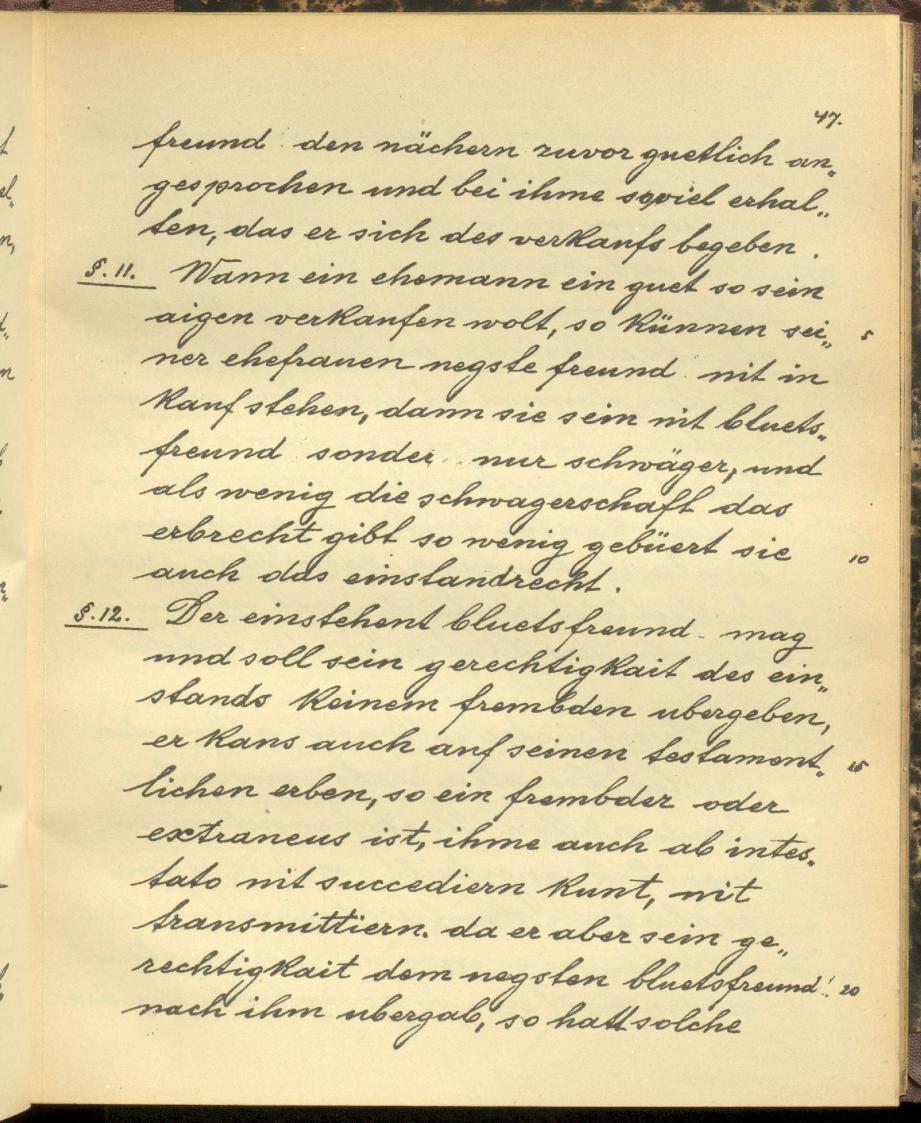 47.
freund den nächern zuvor guetlich an„
gesprochen und bei ihme soviel erhal„
ten, das er sich des verkaufs begeben.
§. 11. Wann ein ehemann ein guet so sein
aigen verkaufen wolt, so künnen sei„ 5
ner ehefrauen negste freund nit in
kauf stehen, dann sie sein nit bluets„
freund sonder nur schwäger, und
als wenig die schwagerschaft das
erbrecht gibt so wenig gebüert sie 10
auch das einstandrecht.
§. 12. Der einstehent bluetsfreund mag
und soll sein gerechtigkait des ein„
stands keinem frembden ubergeben,
er kans auch auf seinen testament„ 15
lichen erben, so ein frembder oder
extraneus ist, ihme auch ab intes„
tato nit succediern kunt, nit
transmittiern. da er aber sein ge„
rechtigkait dem negsten bluetsfreund 20
nach ihm ubergab, so hatt solche